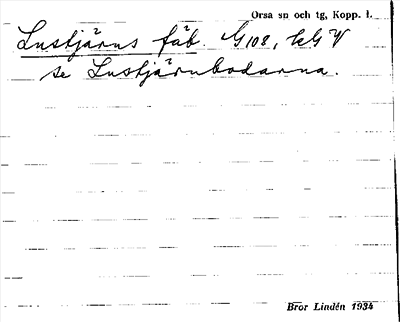 Orsa sn och tg, Kopp. l.
Lustjärns fäb. G108, kG V
se Lustjärnbodarna.
Bror Lindén 1934